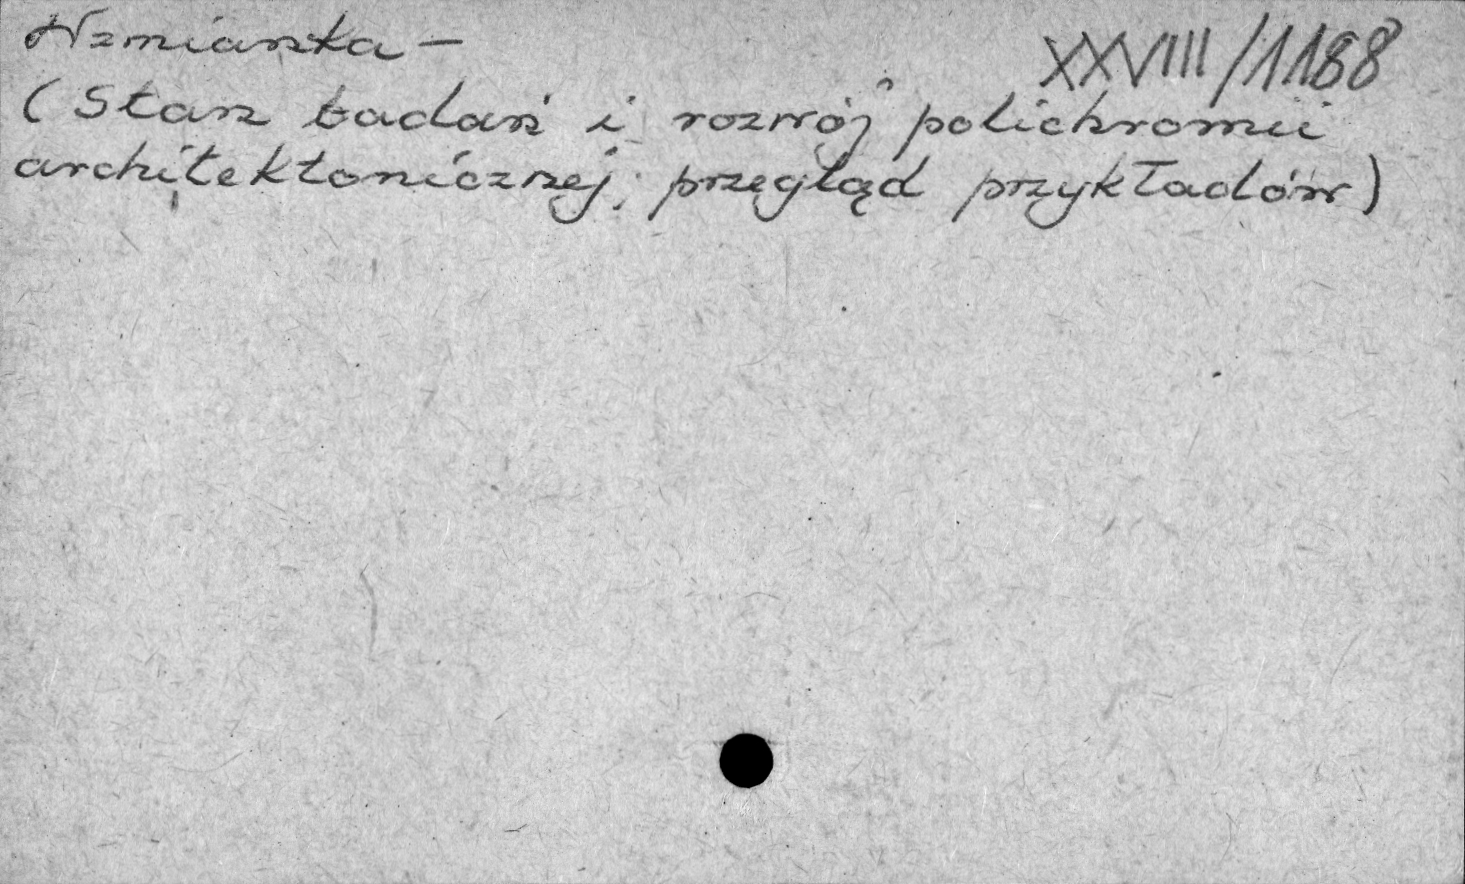 Wzmianka –
XXVIIII/1188
(Stan badań i rozwój polichromii
architektonicznej; przegląd przykładów)